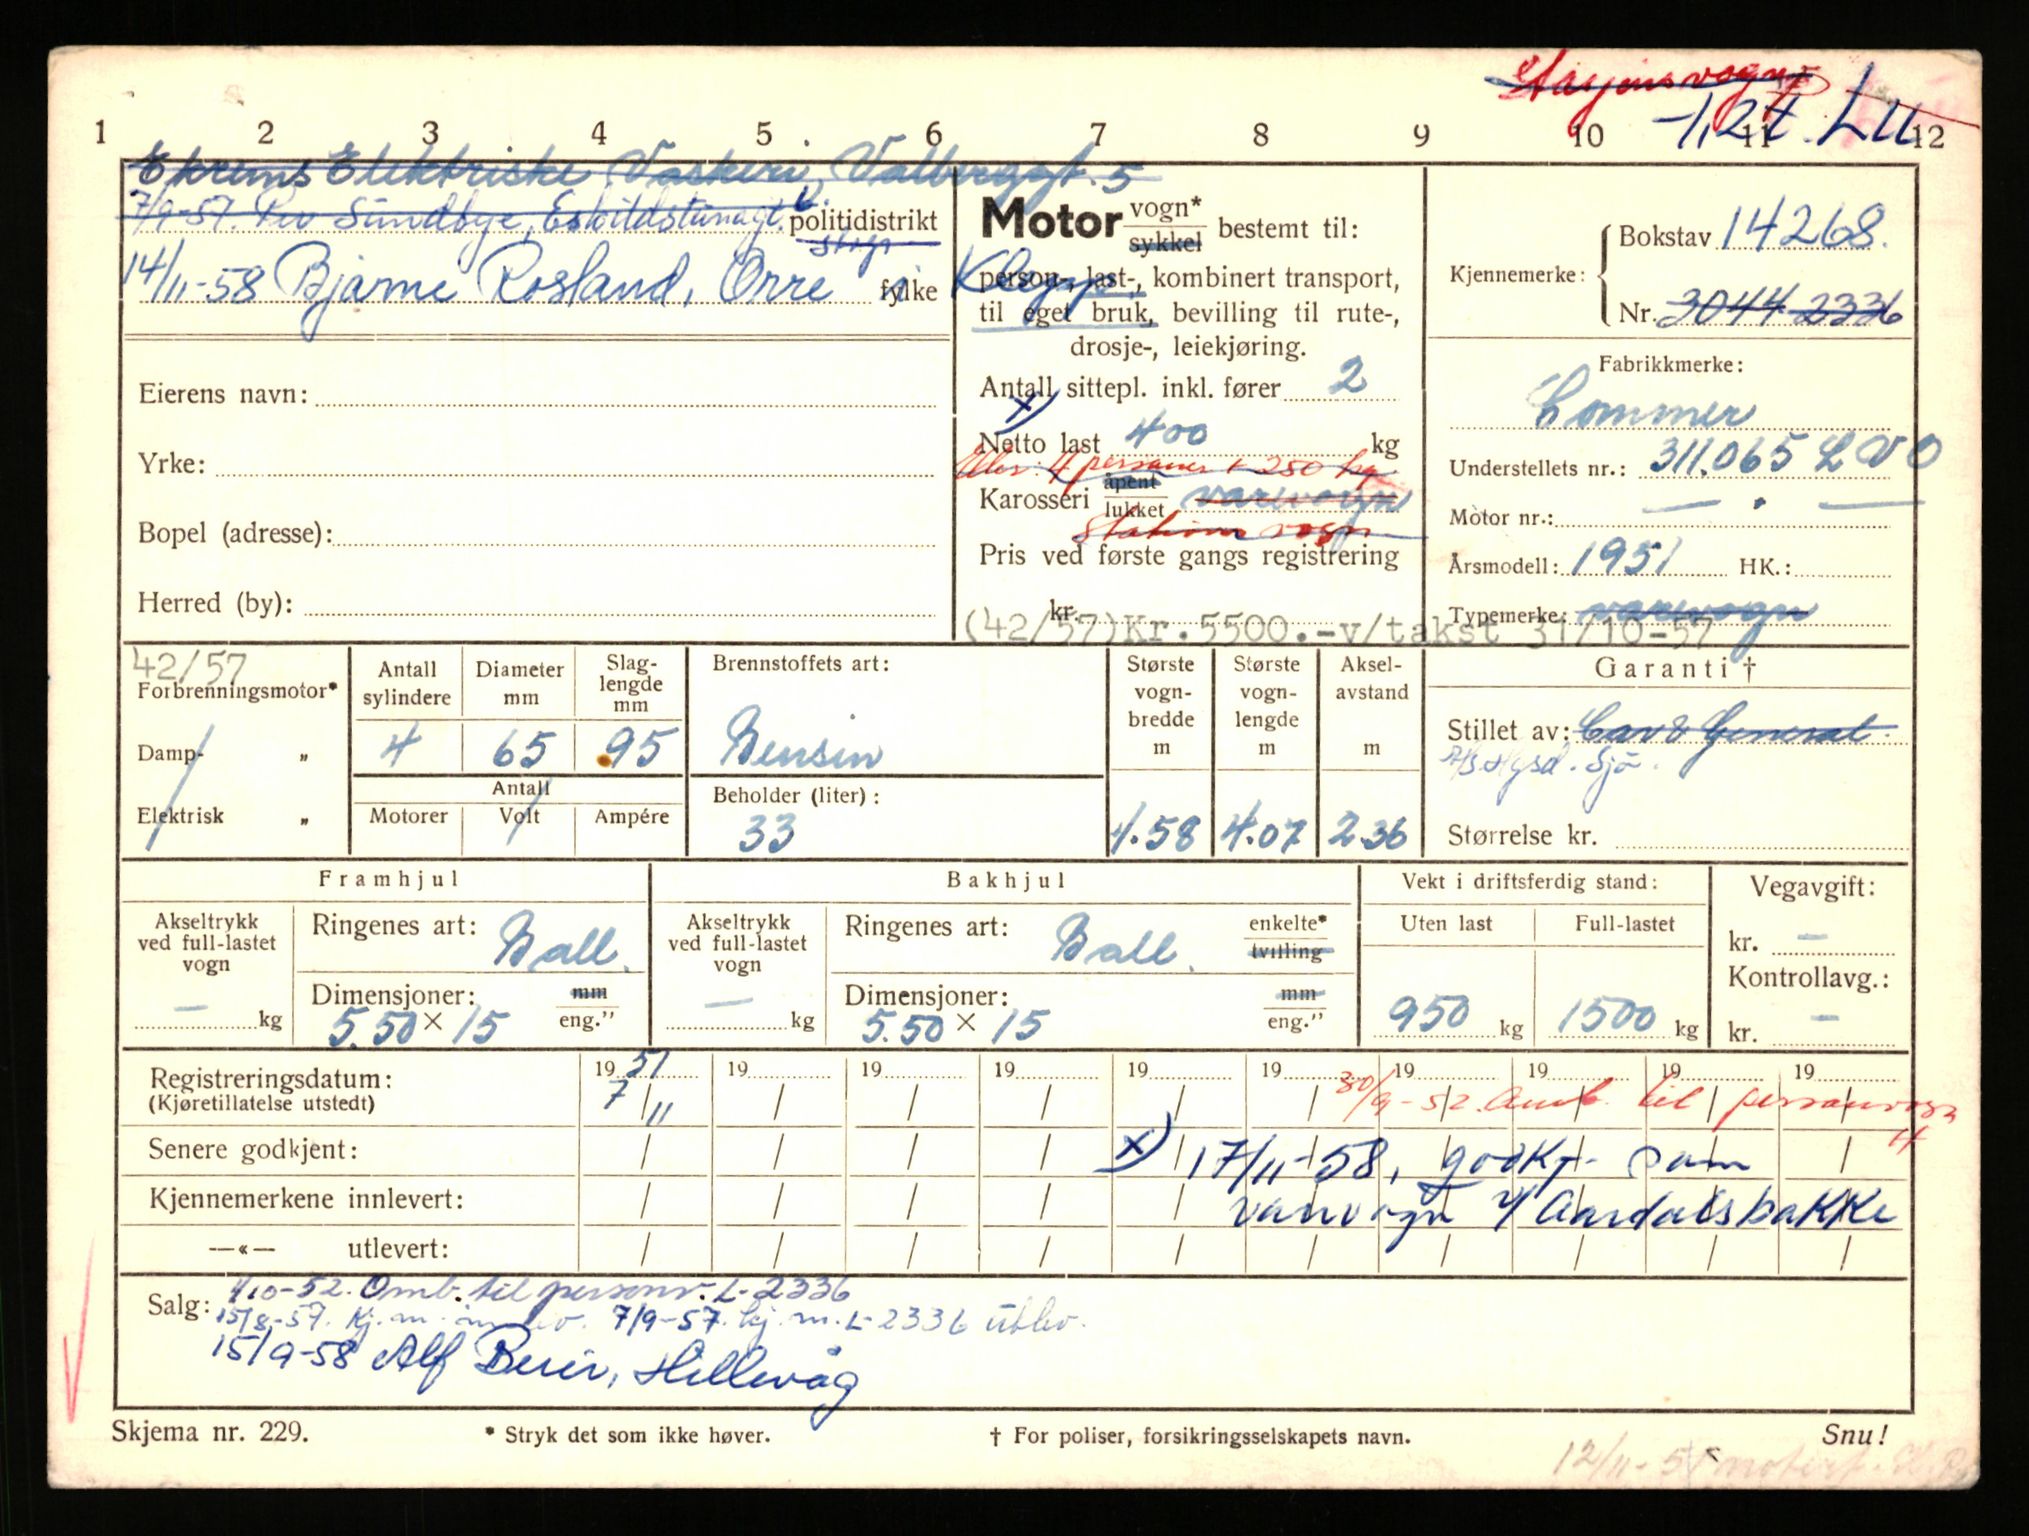 Stasjonsvogn
-1,2t. LU
1 2 3 4 5 6 7 8 9 10 11 12
Ekrems Elektriske Vaskeri, Valberggt. 5
7/9-57. Per Sundbye, politidistrikt
14/11-58 Bjarne Rosland, Orre i Klepp fylke
Eierens navn:
Yrke:
Bopel (adresse):
Herred (by):
Motor vogn* sykkel bestemt til:
person-, last-, kombinert transport,
til eget bruk, bevilling til rute-,
drosje-, leiekjøring.
Antall sittepl. inkl. fører 2
x)
Netto last 400 kg
eller: 4 personer + 250 kg
Karosseri åpent lukket varevogn
Stations vogn
Pris ved første gangs registrering
kr.
(42/57)Kr.5500.-v/takst 31/10-57
Kjennemerke: Bokstav 14268.
Nr. 3044 2336
Fabrikkmerke:
Commer
Understellets nr.: 311.065 LVO
Motor nr.: — " —
Årsmodell: 1951 HK.:
Typemerke: varevogn
42/57
Forbrenningsmotor*
Damp- „
Elektrisk „
Antall sylindere
Diameter mm
Slag-lengde mm
4 65 95
Antall
Motorer Volt Ampére
Brennstoffets art:
Bensin
Beholder (liter):
33
Største vogn-bredde m
Største vogn-lengde m
Aksel-avstand m
1.58 4.07 2.36
Garanti †
Stillet av: Car & General
Størrelse kr.
Framhjul
Akseltrykk ved full-lastet vogn
— kg
Ringenes art: Ball.
Dimensjoner: mm eng."
5.50 × 15
Bakhjul
Akseltrykk ved full-lastet vogn
— kg
Ringenes art: Ball. enkelte* tvilling
Dimensjoner: mm eng."
5.50 × 15
Vekt i driftsferdig stand:
Uten last Full-lastet
950 kg 1500 kg
Vegavgift:
kr. —
Kontrollavg.:
kr. —
Registreringsdatum: 19 51 19 19 19 19 19 19 19 19 19
(Kjøretillatelse utstedt) 7/11 30/9-52. Omb. til personvogn
Senere godkjent: x) 17/11-58, godkj. som
Kjennemerkene innlevert: varevogn v/ Aardalsbakke
—«— utlevert:
1/10-52. Omb. til personv. L-2336
Salg: 15/8-57. Kj.m. innlev. 7/9-57. kj.m. L-2336 utlev.
15/9-58 Alf Beier, Hillevåg
Skjema nr. 229. * Stryk det som ikke høver. † For poliser, forsikringsselskapets navn. Snu!